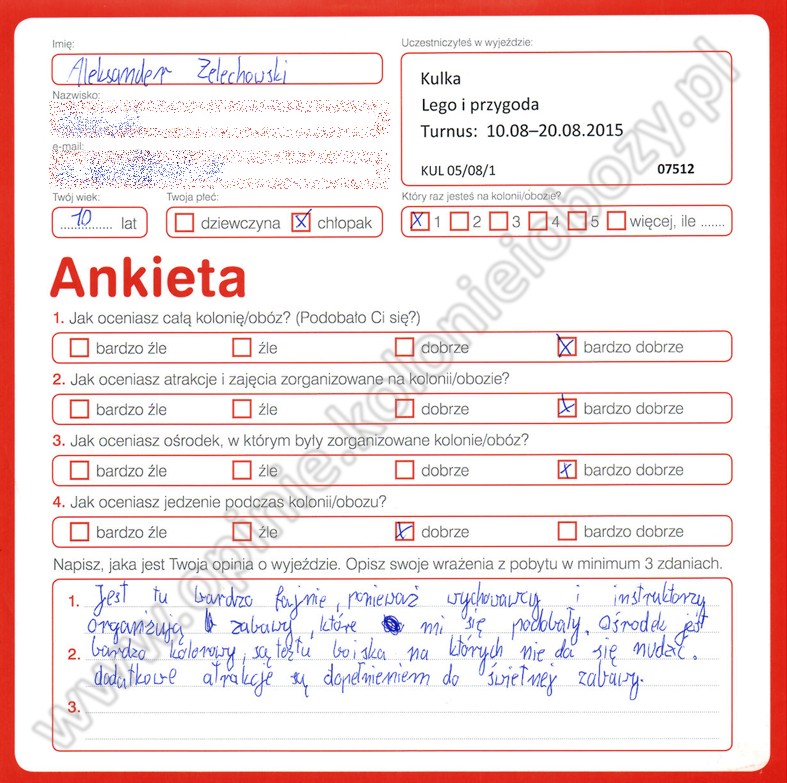 Imię:
Aleksander Zelechowski
Nazwisko:
e-mail:
Twój wiek:
10 lat
Twoja płeć:
dziewczyna X chłopak
Uczestniczyłeś w wyjeździe:
Kulka
Lego i przygoda
Turnus: 10.08–20.08.2015
KUL 05/08/1 07512
Który raz jesteś na kolonii/obozie?
X 1 2 3 4 5 więcej, ile .......
Ankieta
1. Jak oceniasz całą kolonię/obóz? (Podobało Ci się?)
bardzo źle źle dobrze X bardzo dobrze
2. Jak oceniasz atrakcje i zajęcia zorganizowane na kolonii/obozie?
bardzo źle źle dobrze X bardzo dobrze
3. Jak oceniasz ośrodek, w którym były zorganizowane kolonie/obóz?
bardzo źle źle dobrze X bardzo dobrze
4. Jak oceniasz jedzenie podczas kolonii/obozu?
bardzo źle źle X dobrze bardzo dobrze
Napisz, jaka jest Twoja opinia o wyjeździe. Opisz swoje wrażenia z pobytu w minimum 3 zdaniach.
1. Jest tu bardzo fajnie, ponieważ wychowawcy i instruktorzy
organizują zabawy, które mi się podobały. Ośrodek jest
2. bardzo kolorowy, są też tu boiska na których nie da się nudzić.
dodatkowe atrakcje są dopełnieniem do świetnej zabawy.
3.
www.opinie.kolonieiobozy.pl